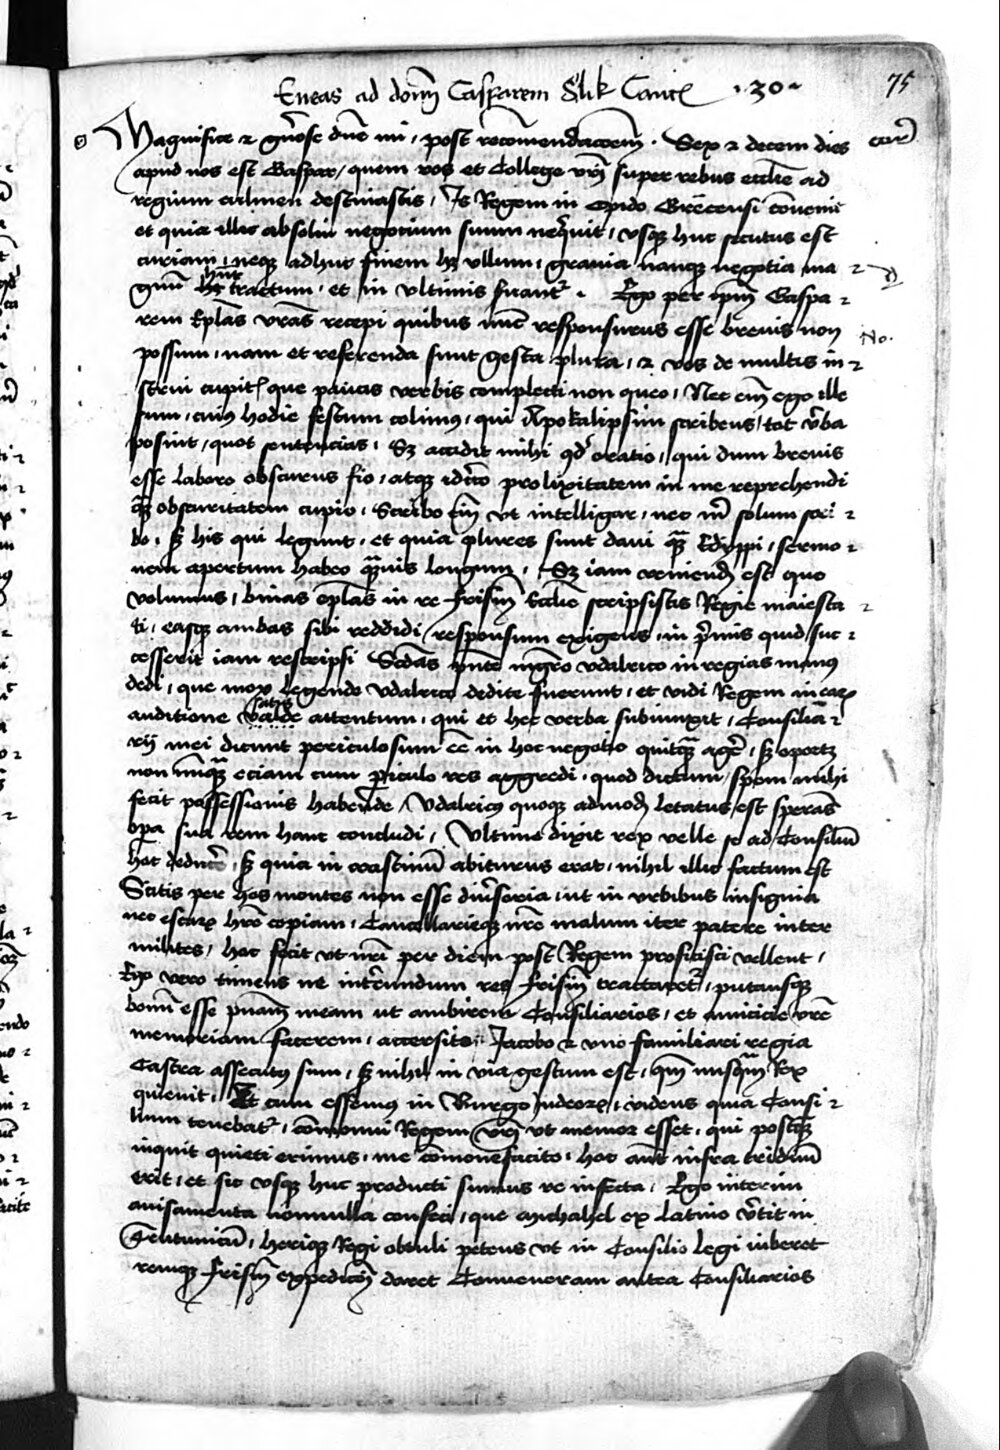 Eneas ad dom̄ Casparem Slik Canc̄ · 30 · 75
Magnifice ⁊ gn̄ose dn̄e mi, post recōmendac̄oem̄ . Sex ⁊ decem dies
apud nos est Caspar, quem vos et College vr̄i super rebus ecclīe ad
regium culmen destinastis, Is Regem in opido Grecensi convenit
et quia illic absolui negotium suum neqͥuit, vsqꝫ huc secutus est
curiam, neqꝫ adhuc finem hꝫ vllum, grauia nanqꝫ negotia ma⸗
gnū hn̄t tractum, et in vltimis seruant᷑ . Ego per ip̄m Caspa⸗
rem Ep̄las vr̄as recepi quibus nūc responsurus esse breuis non
possum, nam et referenda sunt gesta plura, ⁊ vos de multis in⸗
strui cupitꝭ que paucis verbis complecti non queo, Nec em̄ ego ille
sum, cuiꝰ hodie festum colimꝰ, qui Apokalipsim scribens, tot v̄ba
posuit, quot sentencias, Sꝫ accidit mihi qd̓ oratio, qui dum breuis
esse laboro obscurus fio, atqꝫ idc̄o prolixitatem in me reprehendi
qꝫ̄ obscuritatem cupio, Scribo em̄ vt intelligar, nec m̄ solum scri⸗
bo, sꝫ his qui legunt, et quia plures sunt daui qꝫ̄ Edippi, sermo⸗
nem apertum habeo qꝫ̄uis longum, Sꝫ iam veniend̄ est quo
volumus, binas ep̄las in re frisin̄ Ecclīe scripsistis Regie maiesta⸗
ti, easqꝫ ambas sibi reddidi, responsum exigens, in p̄mis quid suc⸗
cesserit iam rescripsi Scd̄as p̄nte mgr̄o vdalrico in regias manꝰ
dedi, que mox legende vdalrico dedite fuerunt, et vidi Regem in eaꝝ
auditione satis valde attentum, qui et hec verba subiunxit, Consilia⸗
rij mei dicunt periculosum ēē in hoc negotio quitqꝫ̄ agē, sꝫ oportꝫ
non nūqꝫ̄ eciam cum periculo res aggredi, quod dictum, spem mihi
fecit possessionis habende, Vdalricꝰ quoqꝫ admod̄ letatus est sperās
opa sua rem hanc concludi, Vltimo dixit rex velle se ad Consiliū
hoc deducē, sꝫ quia in crastinū abiturus erat, nihil illic factum est
Scitis per hos montes non esse diu͛soria, ut in vrbibus insignia
nec escaꝝ hrē copiam, Cancellarieqꝫ nrē malum iter patere inter
milites, hoc fecit vt nr̄i per diem post Regem proficisci vellent,
Ego vero timens ne intērundum res frisin̄ tractaret᷑, putansqꝫ
bonū esse pn̄am̄ meam ut ambirem Consiliarios, et amicicie vrē
memoriam facerem, accersito Jacobo ⁊ vno familiari regia
Castra assecutꝰ sum, sꝫ nihil in via gestum est, qm̄ nusqꝫ̄ Rex
quieuit, Et cum essemus in Burgo Judeoꝝ, videns quia Consi⸗
lium tenebat᷑, cōmonui Regem vr̄i vt memor esset, qui postqꝫ̄
inquit quieti erimus, me cōmonefacito, hoc aūt infra triduū
erit, et sic vsqꝫ huc producti sumus re infecta, Ego interim
auisamenta nonnulla confeci, que michahel ex latino v̄tit in
Teutunicū, heriqꝫ Regi obtuli petens vt in Consilio legi iuberet
remqꝫ frisin̄ expedic̄oi daret Conueneram antea Consiliarios
No.